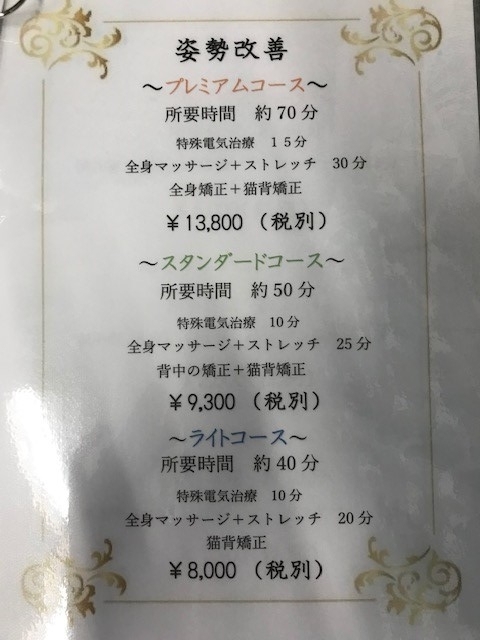 姿勢改善
～プレミアムコース～
所要時間　約70分
特殊電気治療　１５分
全身マッサージ＋ストレッチ　30分
全身矯正＋猫背矯正
￥13,800（税別）
～スタンダードコース～
所要時間　約50分
特殊電気治療　10分
全身マッサージ＋ストレッチ　25分
背中の矯正＋猫背矯正
￥9,300（税別）
～ライトコース～
所要時間　約40分
特殊電気治療　10分
全身マッサージ＋ストレッチ　20分
猫背矯正
￥8,000（税別）